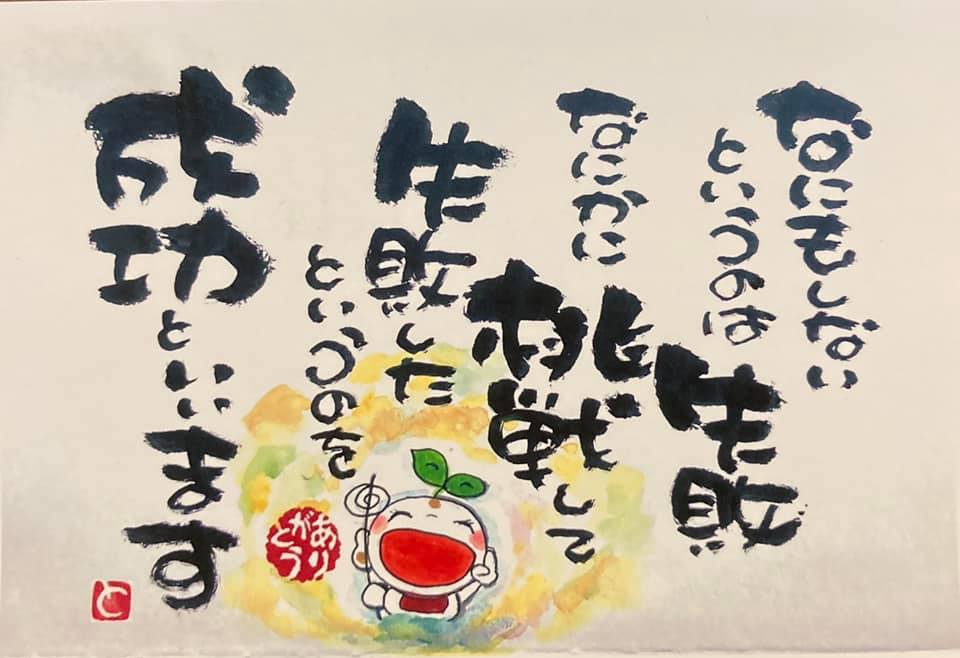 なにもしない
というのは
失敗
なにかに
挑戦して
失敗した
というのを
成功といいます
ありがとう
と